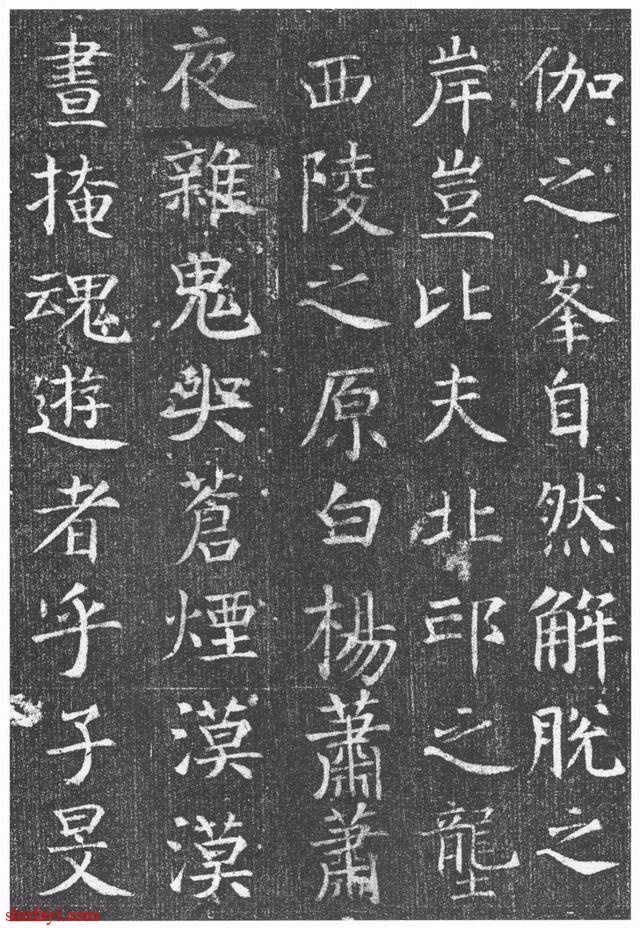 伽之峯自然解脱之
岸豈比夫北邙之壟
西陵之原白楊蕭蕭
夜雜鬼哭蒼煙漠漠
晝掩魂遊者乎子旻
shufayi.com